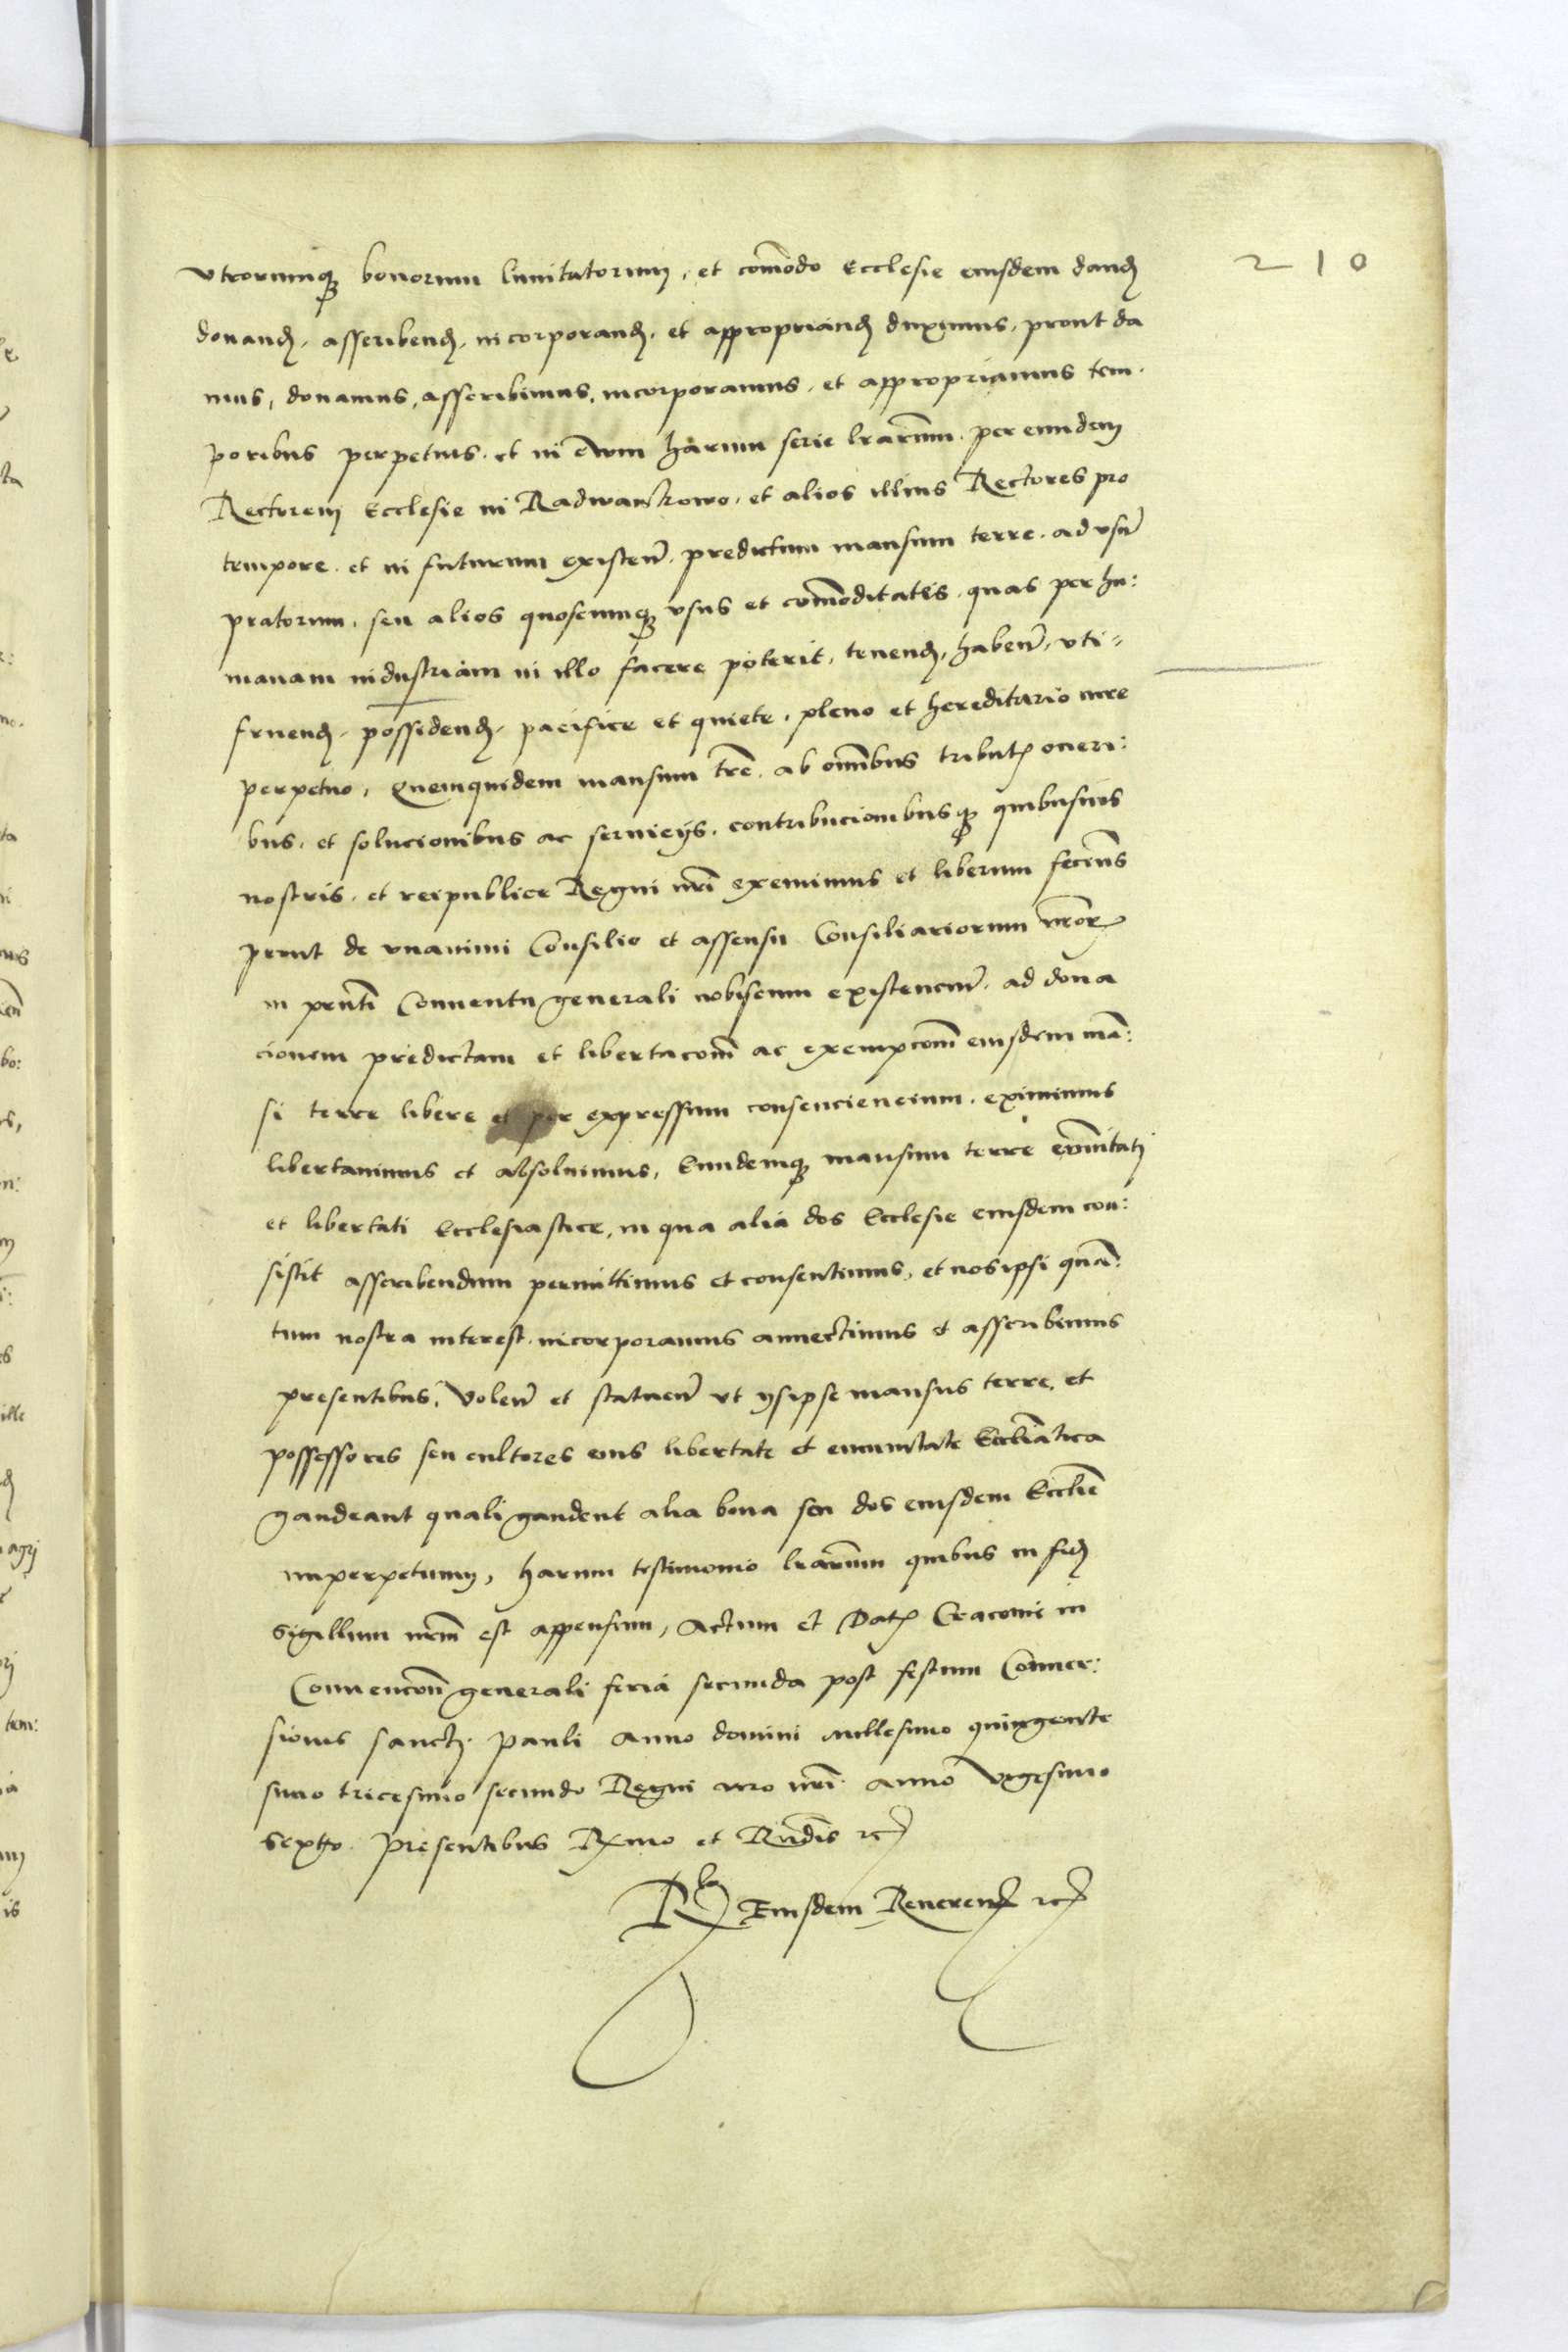 210
vtrorumq bonorum limitatorum, et comodo Ecclesie eiusdem dand
donand, asscribend, incorporand, et appropriand duximus, prout da
mus, donamus, asscribimus, incorporamus, et appropriamus tem
poribus perpetuis, et in ewm harum serie lrarum, per eundem
Rectorem Ecclesie in Radwankowo, et alios illius Rectores pro
tempore, et in futurum existen, predictum mansum terre, ad vsu
pratorum, seu alios quoscumq vsus et comoditates, quas per hu:
manam industriam in illo facere poterit, tenend, haben, vti-
fruend, possidend, pacifice et quiete, pleno et hereditario iure
perpetuo, Quemquidem mansum tre, ab omibus tribut oneri:
bus, et solucionibus ac seruicijs, contribucionibusq quibusuis
nostris, et reipublice Regni nri exemimus et liberum fecimus
prout de vnanimi Consilio et assensu Consiliariorum nror
in pnti Conuentu generali nobiscum existencium, ad dona
cionem predictam et libertacom ac exempcom eiusdem ma:
si terre libere et per expressum consenciencium, eximimus
libertamus et absoluimus, Eundemq mansum terre emunitati
et libertati Ecclesiastice, in qua alia dos Ecclesie eiusdem con:
sistit asscribendum permittimus et consentimus, et nos ipsi qua:
tum nostra interest, incorporamus annectimus et asscribimus
presentibus, Volen et statuen vt ipse mansus terre, et
possessores seu cultores eius libertate et emunitate Eccliatica
gaudeant quali gaudent alia bona seu dos eiusdem Ecclie
imperpetuum, harum testimonio lrarum quibus in fid
Sigillum nrm est appensum, Actum et Dat Cracouie in
Conuencon generali feria secunda post festum Conuer:
sionis sancti Pauli Anno domini millesimo quingente
simo tricesimo secundo Regni vero nri anno vigesimo
Sexto. Presentibus Rxmo et Rndis etc
R Eiusdem Reueren etc